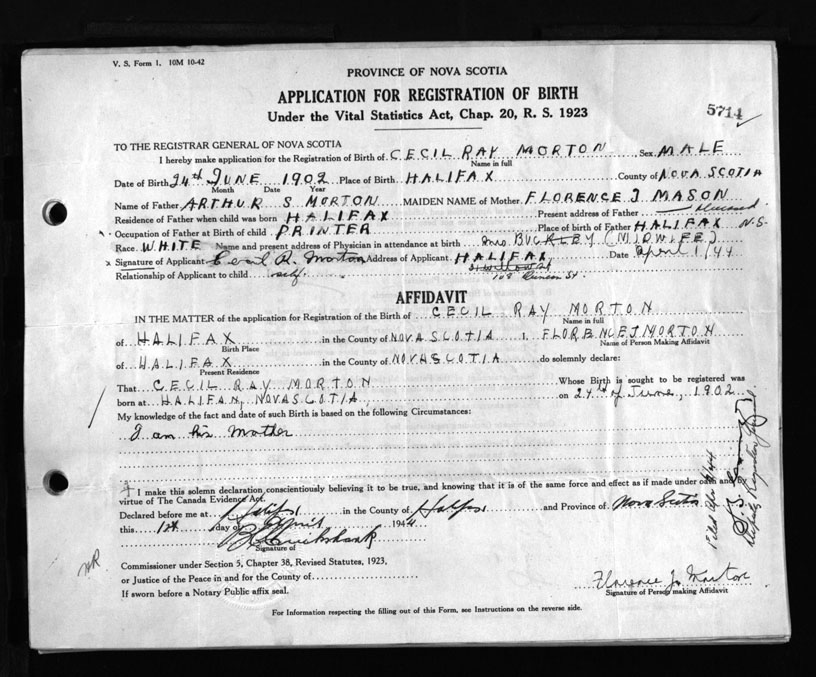 V. S. Form 1. 10M 10-42
PROVINCE OF NOVA SCOTIA
APPLICATION FOR REGISTRATION OF BIRTH
Under the Vital Statistics Act, Chap. 20, R. S. 1923
5714
TO THE REGISTRAR GENERAL OF NOVA SCOTIA
I hereby make application for the Registration of Birth of CECIL RAY MORTON Sex MALE
Name in full
Date of Birth 24th JUNE 1902 Place of Birth HALIFAX County of NOVA SCOTIA
Month Date Year
Name of Father ARTHUR S MORTON MAIDEN NAME of Mother FLORENCE J MASON
Residence of Father when child was born HALIFAX Present address of Father Deceased
Occupation of Father at Birth of child PRINTER Place of birth of Father HALIFAX N.S.
Race WHITE Name and present address of Physician in attendance at birth Mrs BUCKLEY (MIDWIFE)
Signature of Applicant Cecil R. Morton Address of Applicant HALIFAX Date April 1/44
Relationship of Applicant to child self
AFFIDAVIT
IN THE MATTER of the application for Registration of the Birth of CECIL RAY MORTON
Name in full
of HALIFAX in the County of NOVA SCOTIA I, FLORENCE J MORTON
Birth Place Name of Person Making Affidavit
of HALIFAX in the County of NOVA SCOTIA do solemnly declare:
Present Residence
That CECIL RAY MORTON Whose Birth is sought to be registered was
born at HALIFAX, NOVA SCOTIA, on 24th of June, 1902
My knowledge of the fact and date of such Birth is based on the following Circumstances:
I am his Mother
I make this solemn declaration conscientiously believing it to be true, and knowing that it is of the same force and effect as if made under oath and by
virtue of The Canada Evidence Act.
Declared before me at Halifax in the County of Halifax and Province of Nova Scotia
this 1st day of April 1944
Signature of
Commissioner under Section 5, Chapter 38, Revised Statutes, 1923,
or Justice of the Peace in and for the County of
If sworn before a Notary Public affix seal.
Florence J. Morton
Signature of Person making Affidavit
For Information respecting the filling out of this Form, see Instructions on the reverse side.